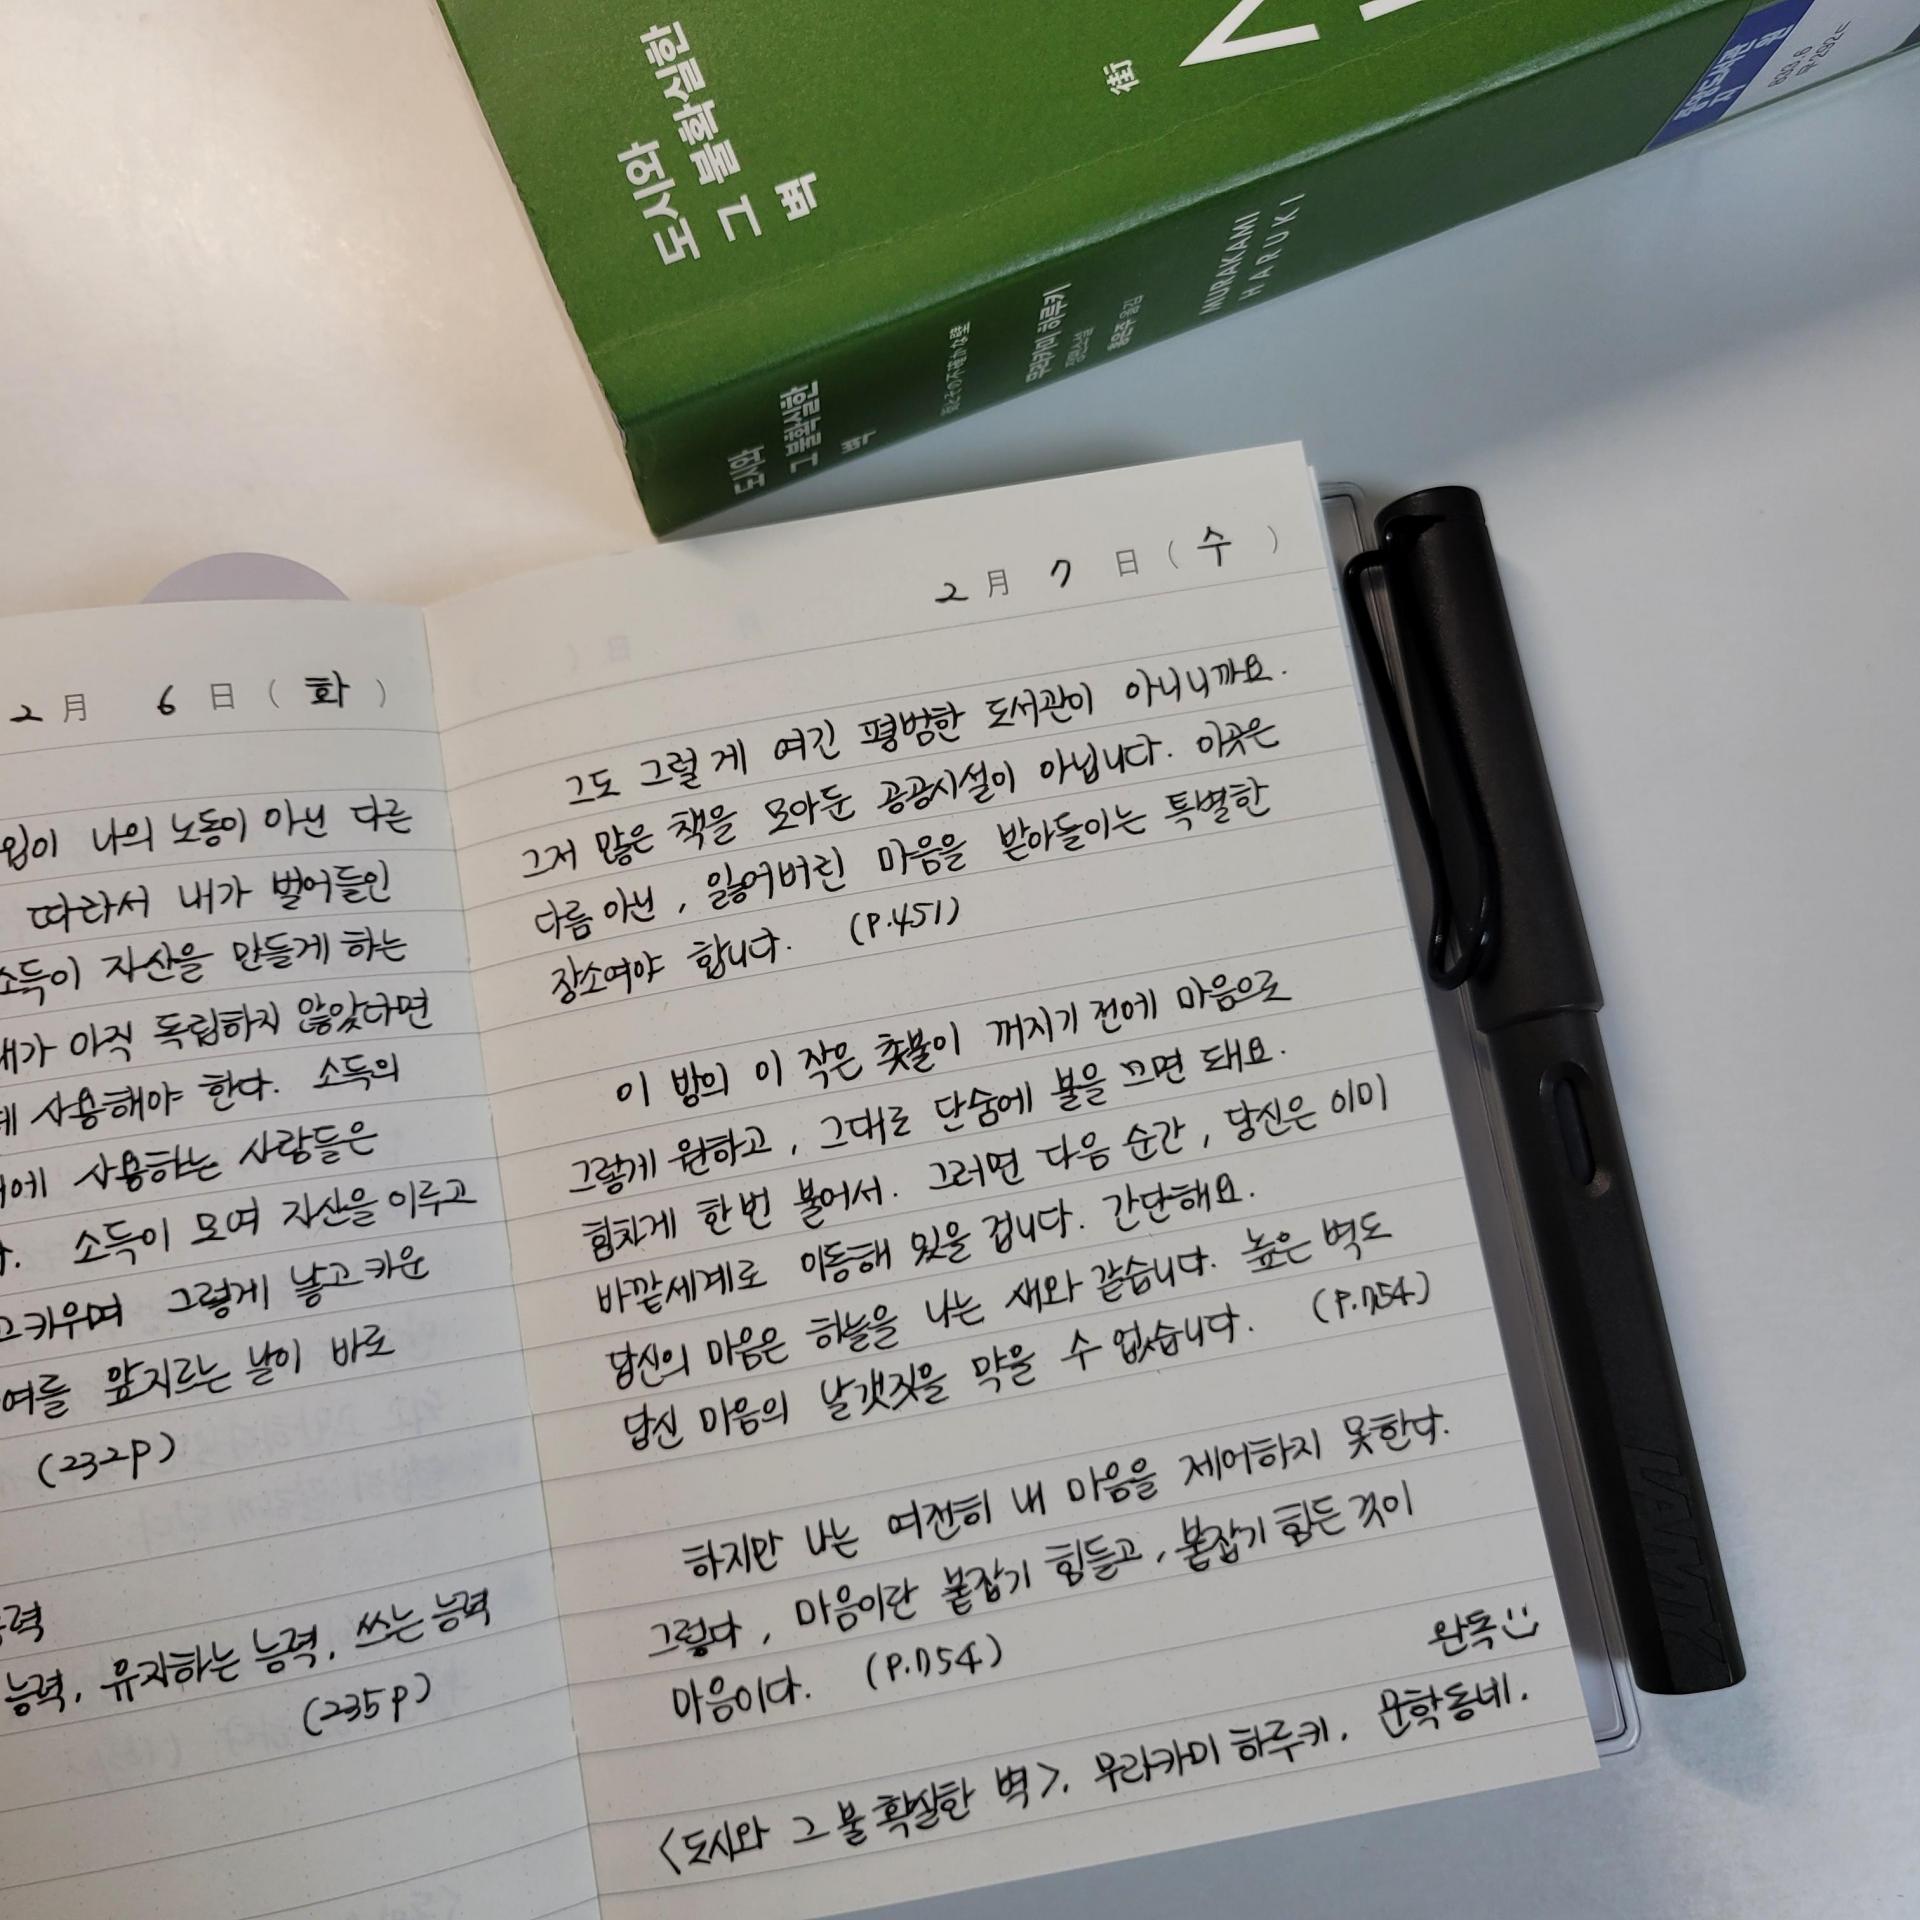 도시와
그 불확실한
벽
街
도시와
그 불확실한
벽
街とその不確かな壁
무라카미 하루키
장편소설
홍은주 옮김
MURAKAMI
HARUKI
833.6
2 月 6 日 ( 화 )
나의 노동이 아닌 다른
따라서 내가 벌어들인
소득이 자산을 만들게 하는
내가 아직 독립하지 않았다면
데 사용해야 한다. 소득의
에 사용하는 사람들은
소득이 모여 자산을 이루고
고 키우며 그렇게 낳고 키운
앞지르는 날이 바로
(232p)
능력
능력, 유지하는 능력, 쓰는 능력
(235p)
2 月 7 日 ( 수 )
그도 그럴 게 여긴 평범한 도서관이 아니니까요.
그저 많은 책을 모아둔 공공시설이 아닙니다. 이곳은
다름 아닌, 잃어버린 마음을 받아들이는 특별한
장소여야 합니다. (P.451)
이 방의 이 작은 촛불이 꺼지기 전에 마음으로
그렇게 원하고, 그대로 단숨에 불을 끄면 돼요.
힘차게 한번 불어서. 그러면 다음 순간, 당신은 이미
바깥세계로 이동해 있을 겁니다. 간단해요.
당신의 마음은 하늘을 나는 새와 같습니다. 높은 벽도
당신 마음의 날갯짓을 막을 수 없습니다. (P.754)
하지만 나는 여전히 내 마음을 제어하지 못한다.
그렇다, 마음이란 붙잡기 힘들고, 붙잡기 힘든 것이
마음이다. (P.754)
완독
<도시와 그 불확실한 벽>, 무라카미 하루키, 문학동네.
LAMY